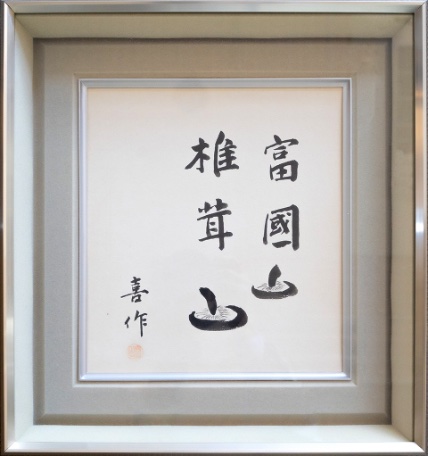 富國山
椎茸山
喜作